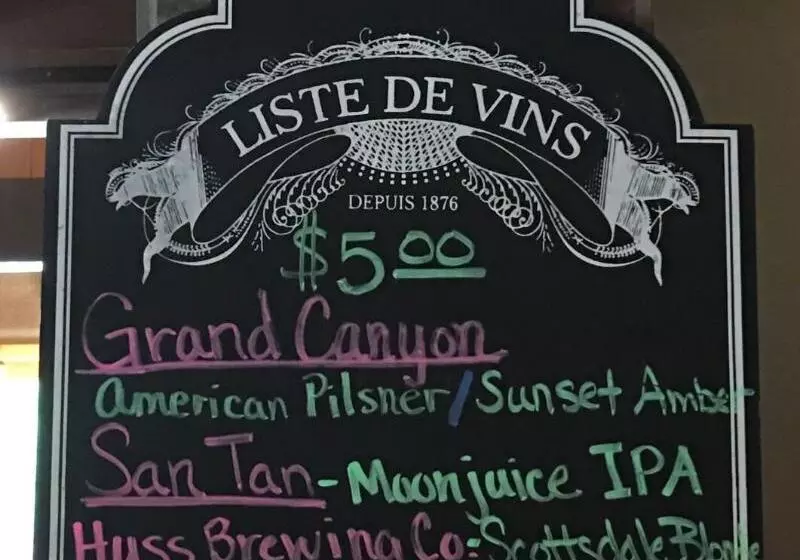 LISTE DE VINS
DEPUIS 1876
$5.00
Grand Canyon
American Pilsner/Sunset Amber
San Tan-Moonjuice IPA
Huss Brewing Co:Scottsdale Blonde